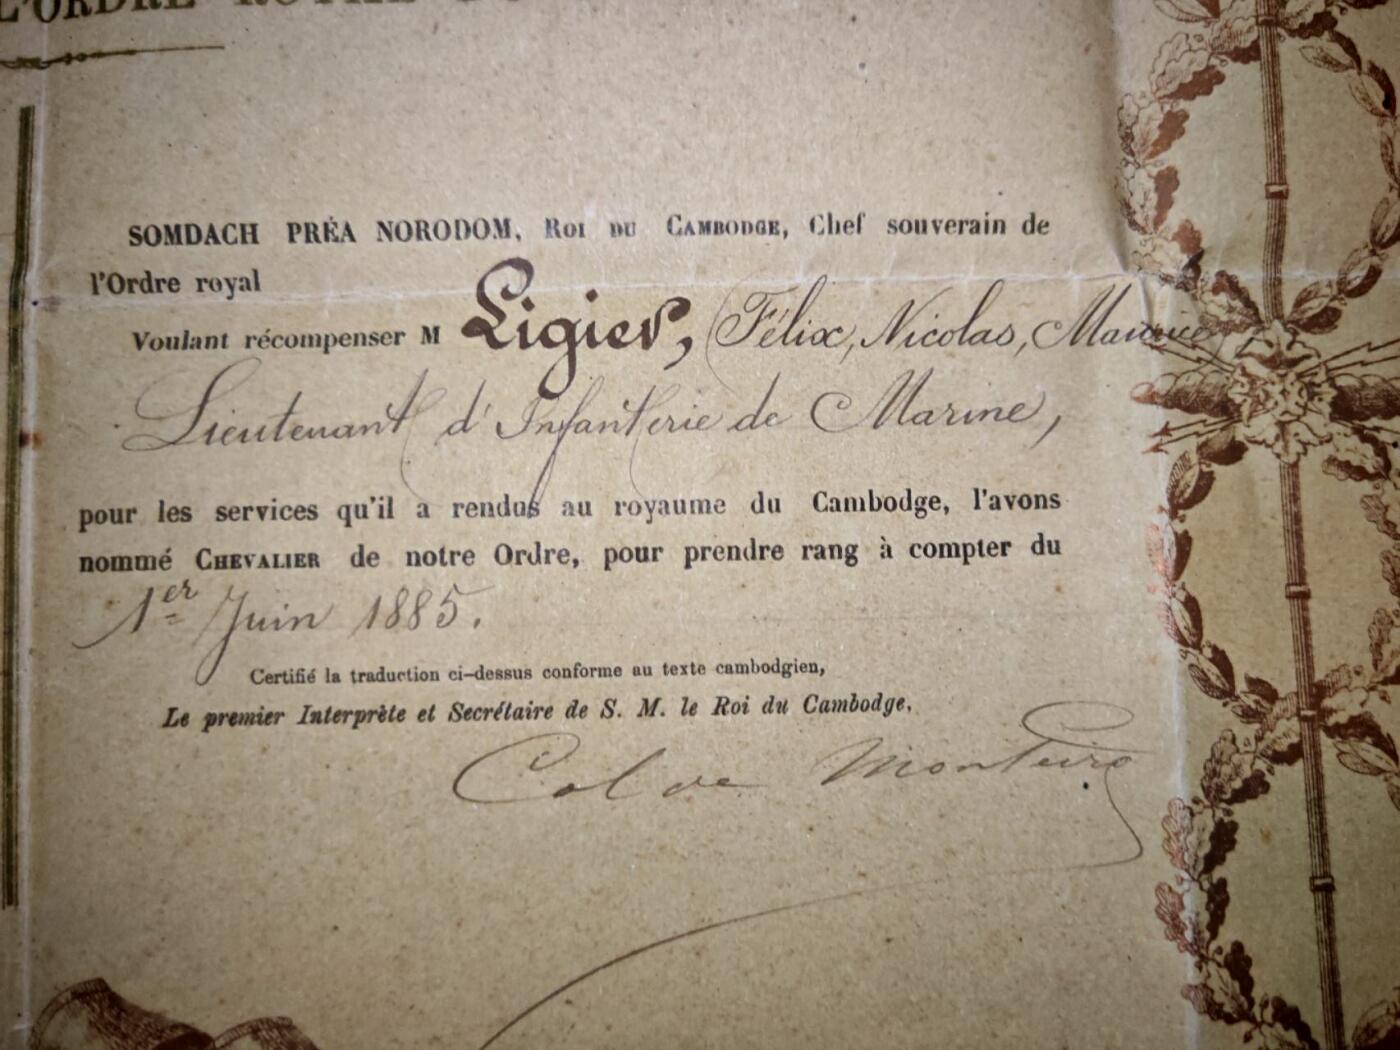 L'ORDRE ROYAL
SOMDACH PRÉA NORODOM, ROI DU CAMBODGE, Chef souverain de
l'Ordre royal
Voulant récompenser M Ligier, (Félix, Nicolas, Maurice)
Lieutenant d'Infanterie de Marine,
pour les services qu'il a rendus au royaume du Cambodge, l'avons
nommé CHEVALIER de notre Ordre, pour prendre rang à compter du
1er Juin 1885.
Certifié la traduction ci-dessus conforme au texte cambodgien,
Le premier Interprète et Secrétaire de S. M. le Roi du Cambodge,
Col de Monteiro